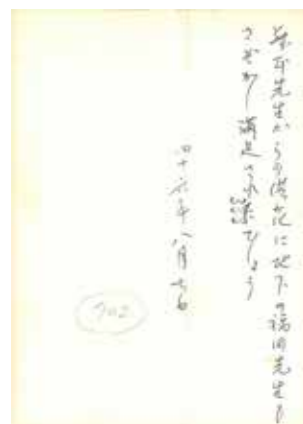 先生からの供花に地下の福田先生も
さぞかし満足されたでしょう
四十六年八月七日
702